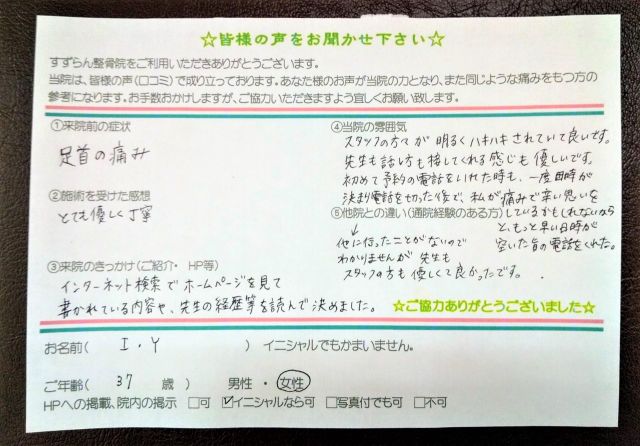 ☆皆様の声をお聞かせ下さい☆
すずらん整骨院をご利用いただきありがとうございます。
当院は、皆様の声(口コミ)で成り立っております。あなた様のお声が当院の力となり、また同じような痛みをもつ方の
参考になります。お手数おかけしますが、ご協力いただきますよう宜しくお願い致します。
①来院前の症状
足首の痛み
②施術を受けた感想
とても優しく丁寧
③来院のきっかけ(ご紹介・ HP等)
インターネット検索でホームページを見て
書かれている内容や、先生の経歴等を読んで決めました。
④当院の雰囲気
スタッフの方々が 明るくハキハキされていて良いです。
先生も話し方も接してくれる感じも優しいです。
初めて予約の電話をいれた時も、一度日時が
決まり電話を切った後で、私が痛みで辛い思いを
しているかもしれないなら
と、もっと早い日時が
空いた旨の電話をくれた。
⑤他院との違い(通院経験のある方)
↓
他に行ったことがないので
わかりませんが 先生も
スタッフの方も 優しくて良かったです。
☆ご協力ありがとうございました☆
お名前( I・Y ) イニシャルでもかまいません。
ご年齢( 37 歳 ) 男性 ・ 女性
HPへの掲載、院内の掲示 □可 ☑イニシャルなら可 □写真付でも可 □不可